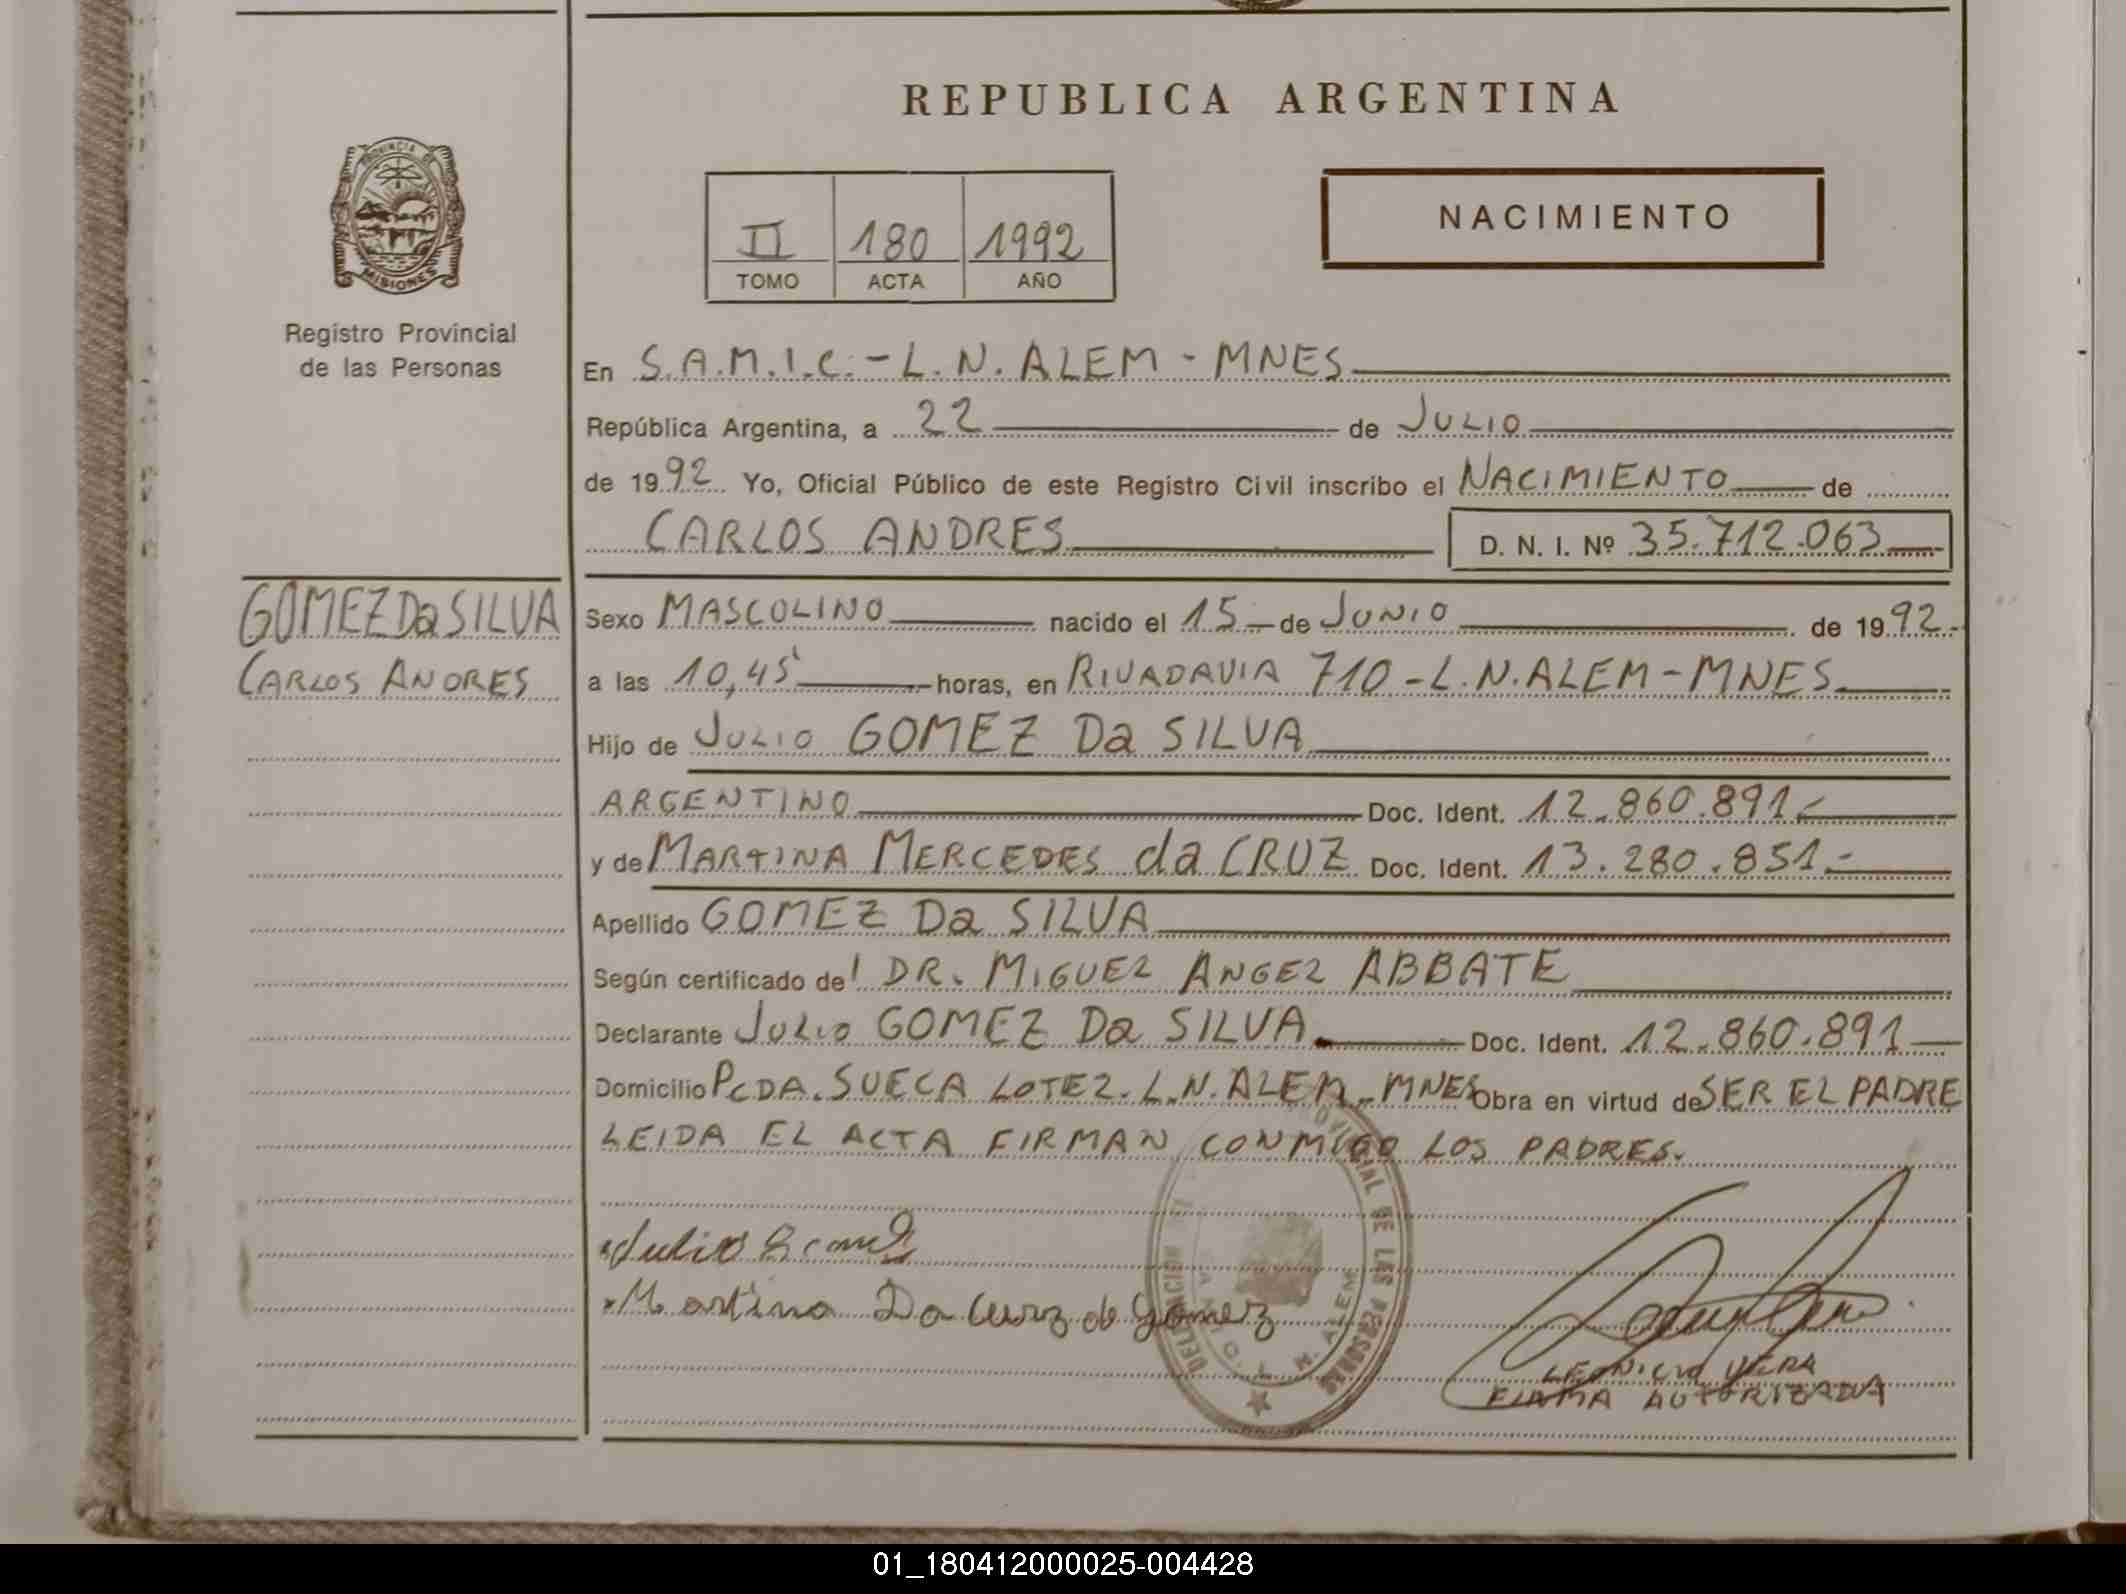 REPUBLICA ARGENTINA
PROVINCIA DE
MISIONES
Registro Provincial
de las Personas
II 180 1992
TOMO ACTA AÑO
NACIMIENTO
En S.A.M.I.C. - L.N. ALEM - MNES
República Argentina, a 22 de JULIO
de 1992 Yo, Oficial Público de este Registro Civil inscribo el NACIMIENTO de
CARLOS ANDRES D. N. I. Nº 35.712.063
GOMEZ Da SILVA
CARLOS ANDRES
Sexo MASCOLINO nacido el 15 de JUNIO de 1992.
a las 10,45' horas, en RIVADAVIA 710 - L.N. ALEM - MNES
Hijo de JULIO GOMEZ Da SILVA
ARGENTINO Doc. Ident. 12.860.891.-
y de MARTINA MERCEDES da CRUZ Doc. Ident. 13.280.851.-
Apellido GOMEZ Da SILVA
Según certificado del DR. MIGUEL ANGEL ABBATE
Declarante JULIO GOMEZ Da SILVA Doc. Ident. 12.860.891
Domicilio PCDA. SUECA LOTE2. L.N. ALEM - MNES Obra en virtud de SER EL PADRE
LEIDA EL ACTA FIRMAN CONMIGO LOS PADRES.
Julio Gomez
Martina Da Cruz de Gomez
DE LAS PERSONAS
N. ALEM
LEONICIO VERA
FIRMA AUTORIZADA
01_180412000025-004428